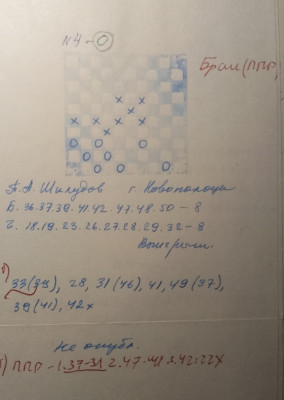 № 4 – O
Брак (ППР)
П. А. Шклудов г. Новополоцк
Б. 36.37.39.41.42.47.48.50 – 8
Ч. 18.19.23.26.27.28.29.32 – 8
Выигрыш.
33(39), 28, 31(46), 41, 49(37),
39(41), 42x
Не опубл.
ППР – 1.37-31 2.47-41 3.42:22X